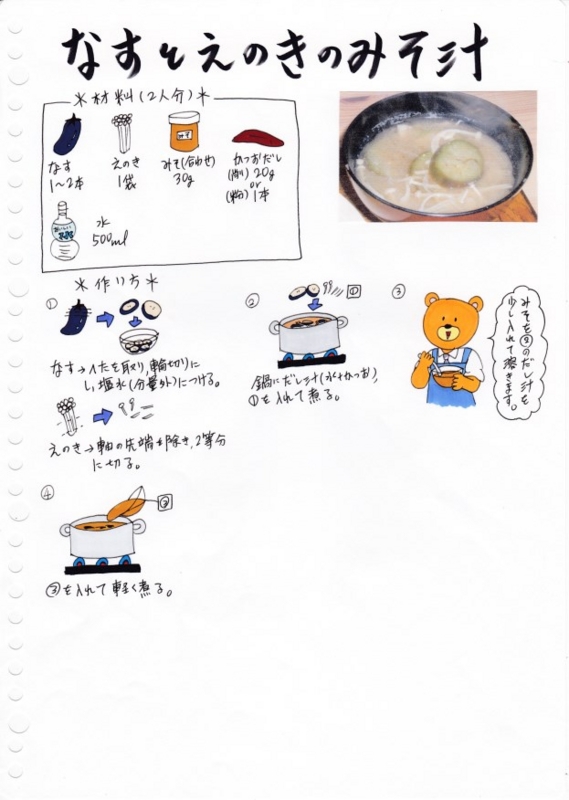 なすとえのきのみそ汁
＊材料(2人分)＊
なす
1〜2本
えのき
1袋
みそ
みそ(合わせ)
30g
かつおだし
(削) 20g
or
(粉) 1本
水
500ml
＊作り方＊
①
なす→へたを取り、輪切りに
し、塩水(分量外)につける。
えのき→軸の先端を除き、2等分
に切る。
②
①
鍋にだし汁(水+かつお)、
①を入れて煮る。
③
みそを②のだし汁を
少し入れて溶きます。
④
③
③を入れて軽く煮る。